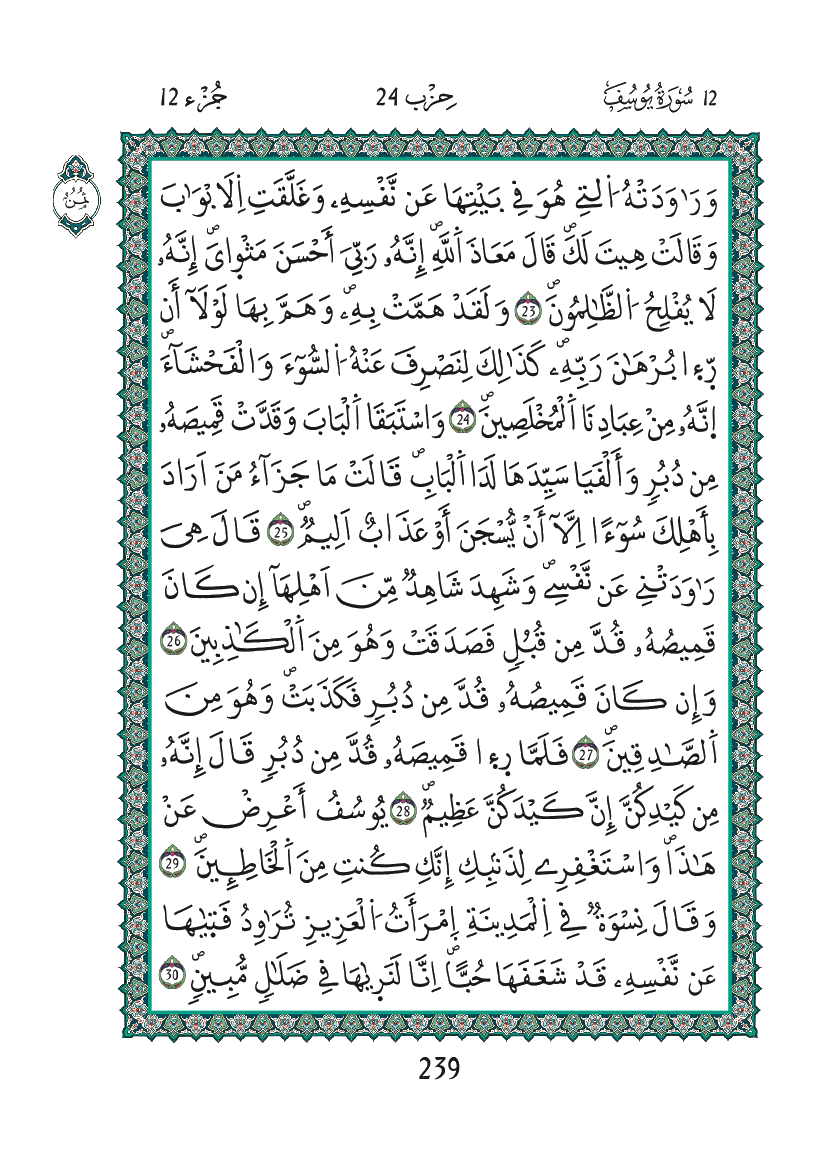 12 سُورَةُ يُوسُفَ
حِزْب 24
جُزْء 12
ثُمُن
وَرَٰوَدَتْهُ اُ۬لتِے هُوَ فِے بَيْتِهَا عَن نَّفْسِهِۦ وَغَلَّقَتِ اِ۬لَابْوَٰبَ
وَقَالَتْ هِيتَ لَكَۖ قَالَ مَعَاذَ اَ۬للَّهِۖ إِنَّهُۥ رَبِّيَ أَحْسَنَ مَثْو۪ايَۖ إِنَّهُۥ
لَا يُفْلِحُ اُ۬لظَّٰلِمُونَۖ 23 وَلَقَدْ هَمَّتْ بِهِۦۖ وَهَمَّ بِهَا لَوْلَآ أَن
رّ۪ء۪ا بُرْهَٰنَ رَبِّهِۦۖ كَذَٰلِكَ لِنَصْرِفَ عَنْهُ اُ۬لسُّوٓءَ وَالْفَحْشَآءَۖ
اِنَّهُۥ مِنْ عِبَادِنَا اَ۬لْمُخْلَصِينَۖ 24 وَاسْتَبَقَا اَ۬لْبَابَ وَقَدَّتْ قَمِيصَهُۥ
مِن دُبُرٍ وَأَلْفَيَا سَيِّدَهَا لَدَا اَ۬لْبَابِۖ قَالَتْ مَا جَزَآءُ مَنَ اَرَادَ
بِأَهْلِكَ سُوٓءًا اِلَّآ أَنْ يُّسْجَنَ أَوْ عَذَابٌ اَلِيمٌۖ 25 قَالَ هِيَ
رَٰوَدَتْنِے عَن نَّفْسِےۖ وَشَهِدَ شَاهِدٌ مِّنَ اَهْلِهَآ إِن كَانَ
قَمِيصُهُۥ قُدَّ مِن قُبُلٍ فَصَدَقَتْ وَهُوَ مِنَ اَ۬لْكَٰذِبِينَ 26
وَإِن كَانَ قَمِيصُهُۥ قُدَّ مِن دُبُرٍ فَكَذَبَتْۖ وَهُوَ مِنَ
اَ۬لصَّٰدِقِينَۖ 27 فَلَمَّا ر۪ء۪ا قَمِيصَهُۥ قُدَّ مِن دُبُرٍ قَالَ إِنَّهُۥ
مِن كَيْدِكُنَّ إِنَّ كَيْدَكُنَّ عَظِيمٌۖ 28 يُوسُفُ أَعْرِضْ عَنْ
هَٰذَاۖ وَاسْتَغْفِرِے لِذَنۢبِكِ إِنَّكِ كُنتِ مِنَ اَ۬لْخَاطِـِٕينَۖ 29
وَقَالَ نِسْوَةٌۖ فِے اِ۬لْمَدِينَةِ اِمْرَأَتُ اُ۬لْعَزِيزِ تُرَٰوِدُ فَت۪يٰهَا
عَن نَّفْسِهِۦ قَدْ شَغَفَهَا حُبّاًۖ اِنَّا لَنَر۪يٰهَا فِے ضَلَٰلٍ مُّبِينٍۖ 30
239